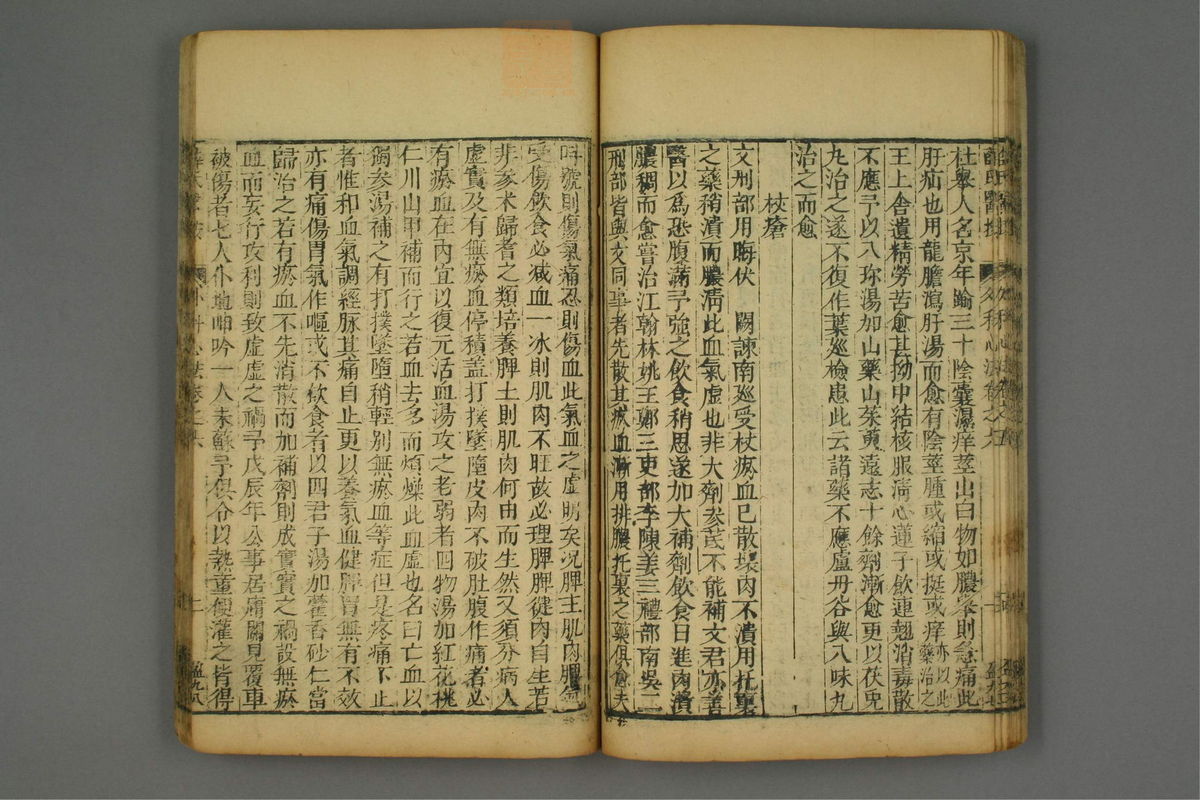 杜舉人名京年踰三十陰囊濕痒莖出白物如膿舉則急痛此
肝疝也用龍膽瀉肝湯而愈有陰莖腫或縮或挺或痒亦以此藥治之
王上舍遺精勞苦愈甚拗中結核服清心蓮子飲連翹消毒散
不應予以八珍湯加山藥山茱萸遠志十餘劑漸愈更以茯兎
丸治之遂不復作葉巡檢患此云諸藥不應盧丹谷與八味丸
治之而愈
杖瘡
文刑部用晦伏 闕諫南巡受杖瘀血已散壞肉不潰用托裏
之藥稍潰而膿清此血氣虛也非大劑參芪不能補文君亦善
醫以爲恐腹滿予強之飲食稍思遂加大補劑飲食日進肉潰
膿稠而愈嘗治江翰林姚王鄭三吏部李陳姜三禮部南吳二
刑部皆與文同事者先散其瘀血漸用排膿托裏之藥俱愈夫
呌號則傷氣痛忍則傷血此氣血之虛明矣况脾主肌肉脾氣
受傷飲食必减血一冰則肌肉不旺故必理脾脾健肉自生若
非參术歸耆之類培養脾土則肌肉何由而生然又須分病人
虛實及有無瘀血停積蓋打撲墜墮皮肉不破肚腹作痛者必
有瘀血在內宜以復元活血湯攻之老弱者四物湯加紅花桃
仁川山甲補而行之若血去多而煩燥此血虛也名曰亡血以
獨參湯補之有打撲墜墮稍輕别無瘀血等症但是疼痛不止
者惟和血氣調經脉其痛自止更以養氣血健脾胃無有不效
亦有痛傷胃氣作嘔或不飲食者以四君子湯加藿香砂仁當
歸治之若有瘀血不先消散而加補劑則成實實之禍設無瘀
血而妄行攻利則致虛虛之禍予戊辰年公事居庸關見覆車
被傷者七人仆地呻吟一人未蘇予俱令以熱童便灌之皆得